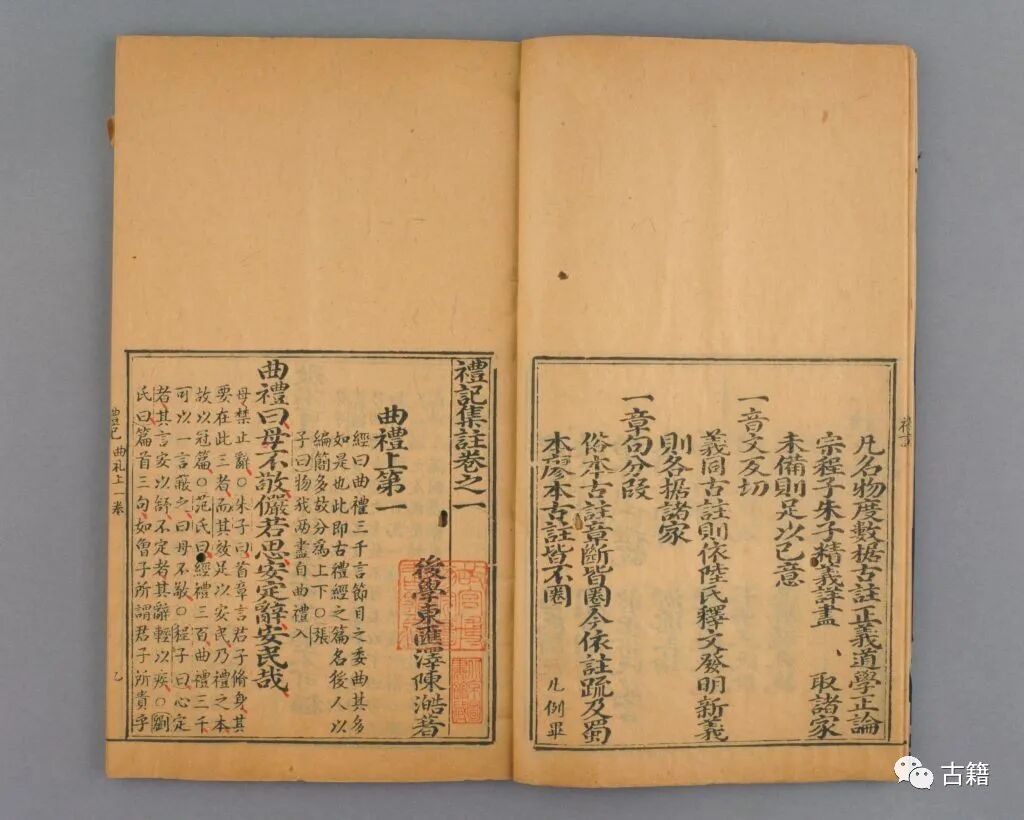 凡名物度數據古註正義道學正論
宗程子朱子精義詳盡　取諸家
未備則足以己意
一音文反切
義同古註則依陸氏釋文發明新義
則各據諸家
一章句分段
俗本古註章斷皆圈今依註疏及蜀
本廖本古註皆不圈　凡例畢
禮記集註卷之一
後學東匯澤陳澔著
曲禮上第一
經曰曲禮三千言節目之委曲其多
如是也此即古禮經之篇名後人以
編簡多故分為上下○張
子曰物我两盡自曲禮入
曲禮曰毋不敬儼若思安定辭安民哉
毋禁止辭○朱子曰首章言君子脩身其
要在此三者而其效足以安民乃禮之本
故以冠篇○范氏曰經禮三百曲禮三千
可以一言蔽之曰毋不敬○程子曰心定
者其言安以舒不定者其辭輕以疾○劉
氏曰篇首三句如曾子所謂君子所貴乎
曲礼上一卷
古籍